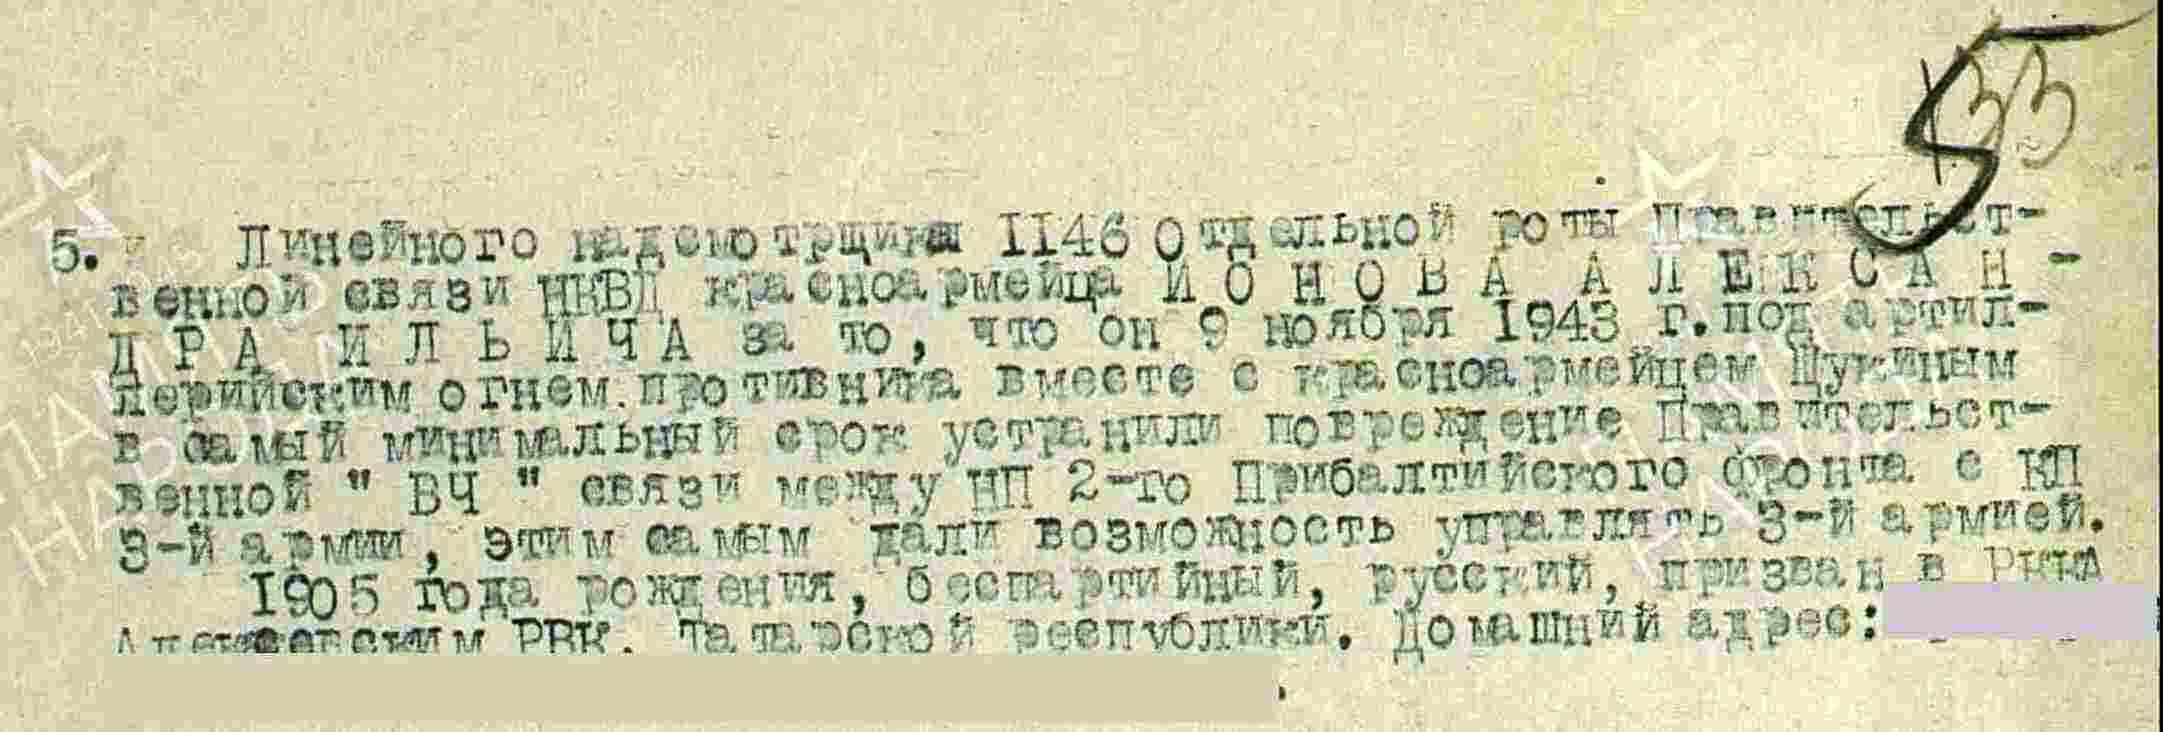 55
133
5. Линейного надсмотрщика 1146 отдельной роты Правительст-
венной связи НКВД красноармейца И О Н О В А А Л Е К С А Н -
Д Р А И Л Ь И Ч А за то, что он 9 ноября 1943 г. под артил-
лерийским огнем противника вместе с красноармейцем Щукиным
в самый минимальный срок устранили повреждение Правительст-
венной " ВЧ " связи между НП 2-го Прибалтийского фронта с КП
3-й армии, этим самым дали возможность управлять 3-й армией.
1905 года рождения, беспартийный, русский, призван в РККА
Алексеевским РВК. Татарской республики. Домашний адрес:
.
ПАМЯТЬ
НАРОДА
1941-1945